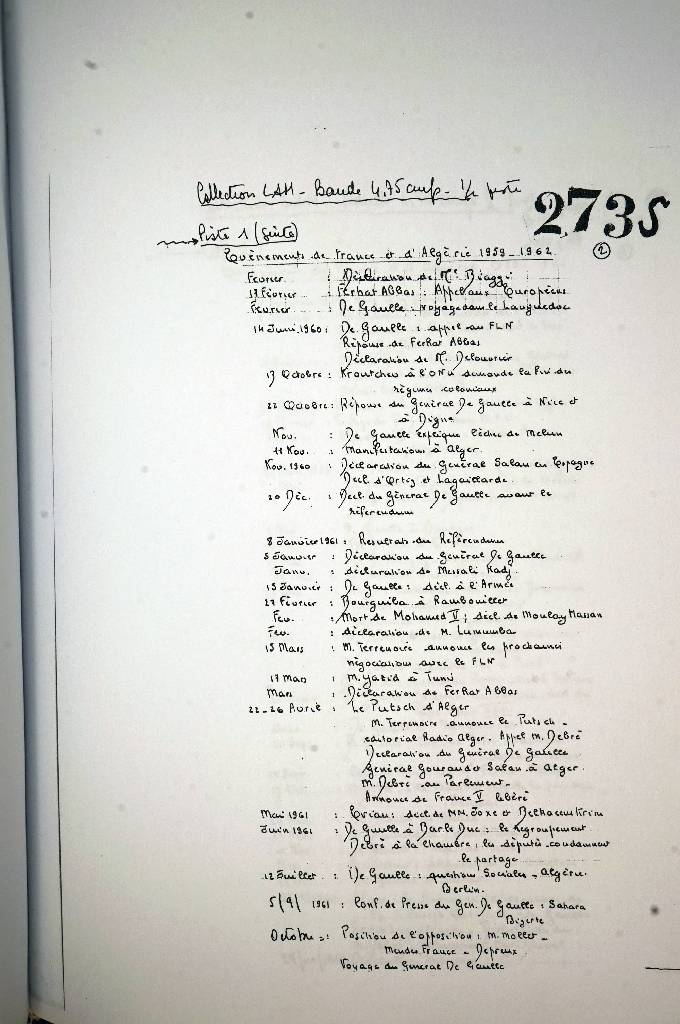 Collection LAH - Bande 4,75 cm/s - 1/2 piste
2735
2
Piste 1 (Suite)
Evènements de France et d'Algérie 1959-1962
Fevrier : Déclaration de Me Biaggi
17 Février : Ferhat Abbas : Appel aux Européens
Fevrier : De Gaulle : voyage dans le Languedoc
14 Juin 1960 : De Gaulle : appel au FLN
Réponse de Ferhat Abbas
Déclaration de M. Delouvrier
13 Octobre : Kroutchev à l'ONU demande la fin du
régime coloniaux
22 Octobre : Réponse du Général De Gaulle à Nice et
à Digne
Nov. : De Gaulle explique l'échec de Melun
11 Nov. : Manifestations à Alger.
Nov. 1960 : Déclaration du Général Salan en Espagne
Decl. d'Ortiz et Lagaillarde.
20 Déc. : Decl. du Général De Gaulle avant le
référendum
8 Janvier 1961 : Resultats du Référendum
5 Janvier : Déclaration du Général De Gaulle
Janv. : déclaration de Messali Hadj
15 Janvier : De Gaulle : décl. à l'Armée
27 Février : Bourguiba à Rambouillet
Fev. : Mort de Mohamed V ; décl. de Moulay Hassan
Fev. : déclaration de M. Lumumba
15 Mars : M. Terrenoire annonce les prochaines
négociations avec le FLN
17 Mars : M. Yazid à Tunis
Mars : Déclaration de Ferhat Abbas
22-26 Avril : Le Putsch d'Alger
M. Terrenoire annonce le Putsch -
editorial Radio Alger. Appel M. Debré
Declaration du Général De Gaulle
Général Gouraud Salan à Alger.
M. Debré au Parlement -
Annonce de France V libéré
Mai 1961 : Evian : décl. de MM. Joxe et Belkacem Krim
Juin 1961 : De Gaulle à Bar le Duc : le regroupement
Debré à la Chambre ; les députés condamnent
le partage
12 Juillet : De Gaulle : questions Sociales - Algérie.
Berlin.
5/9/1961 : Conf. de Presse du Gen. De Gaulle : Sahara
Bizerte
Octobre : Position de l'opposition : M. Mollet -
Mendes France - Depreux
Voyage du General De Gaulle